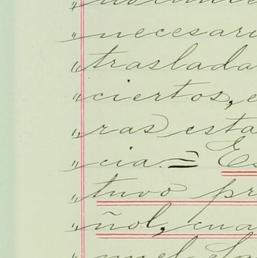 " necesari
" traslada
" ciertos, e
" ras esta
" cia.= Es
" tuvo pr
" ñol, cua